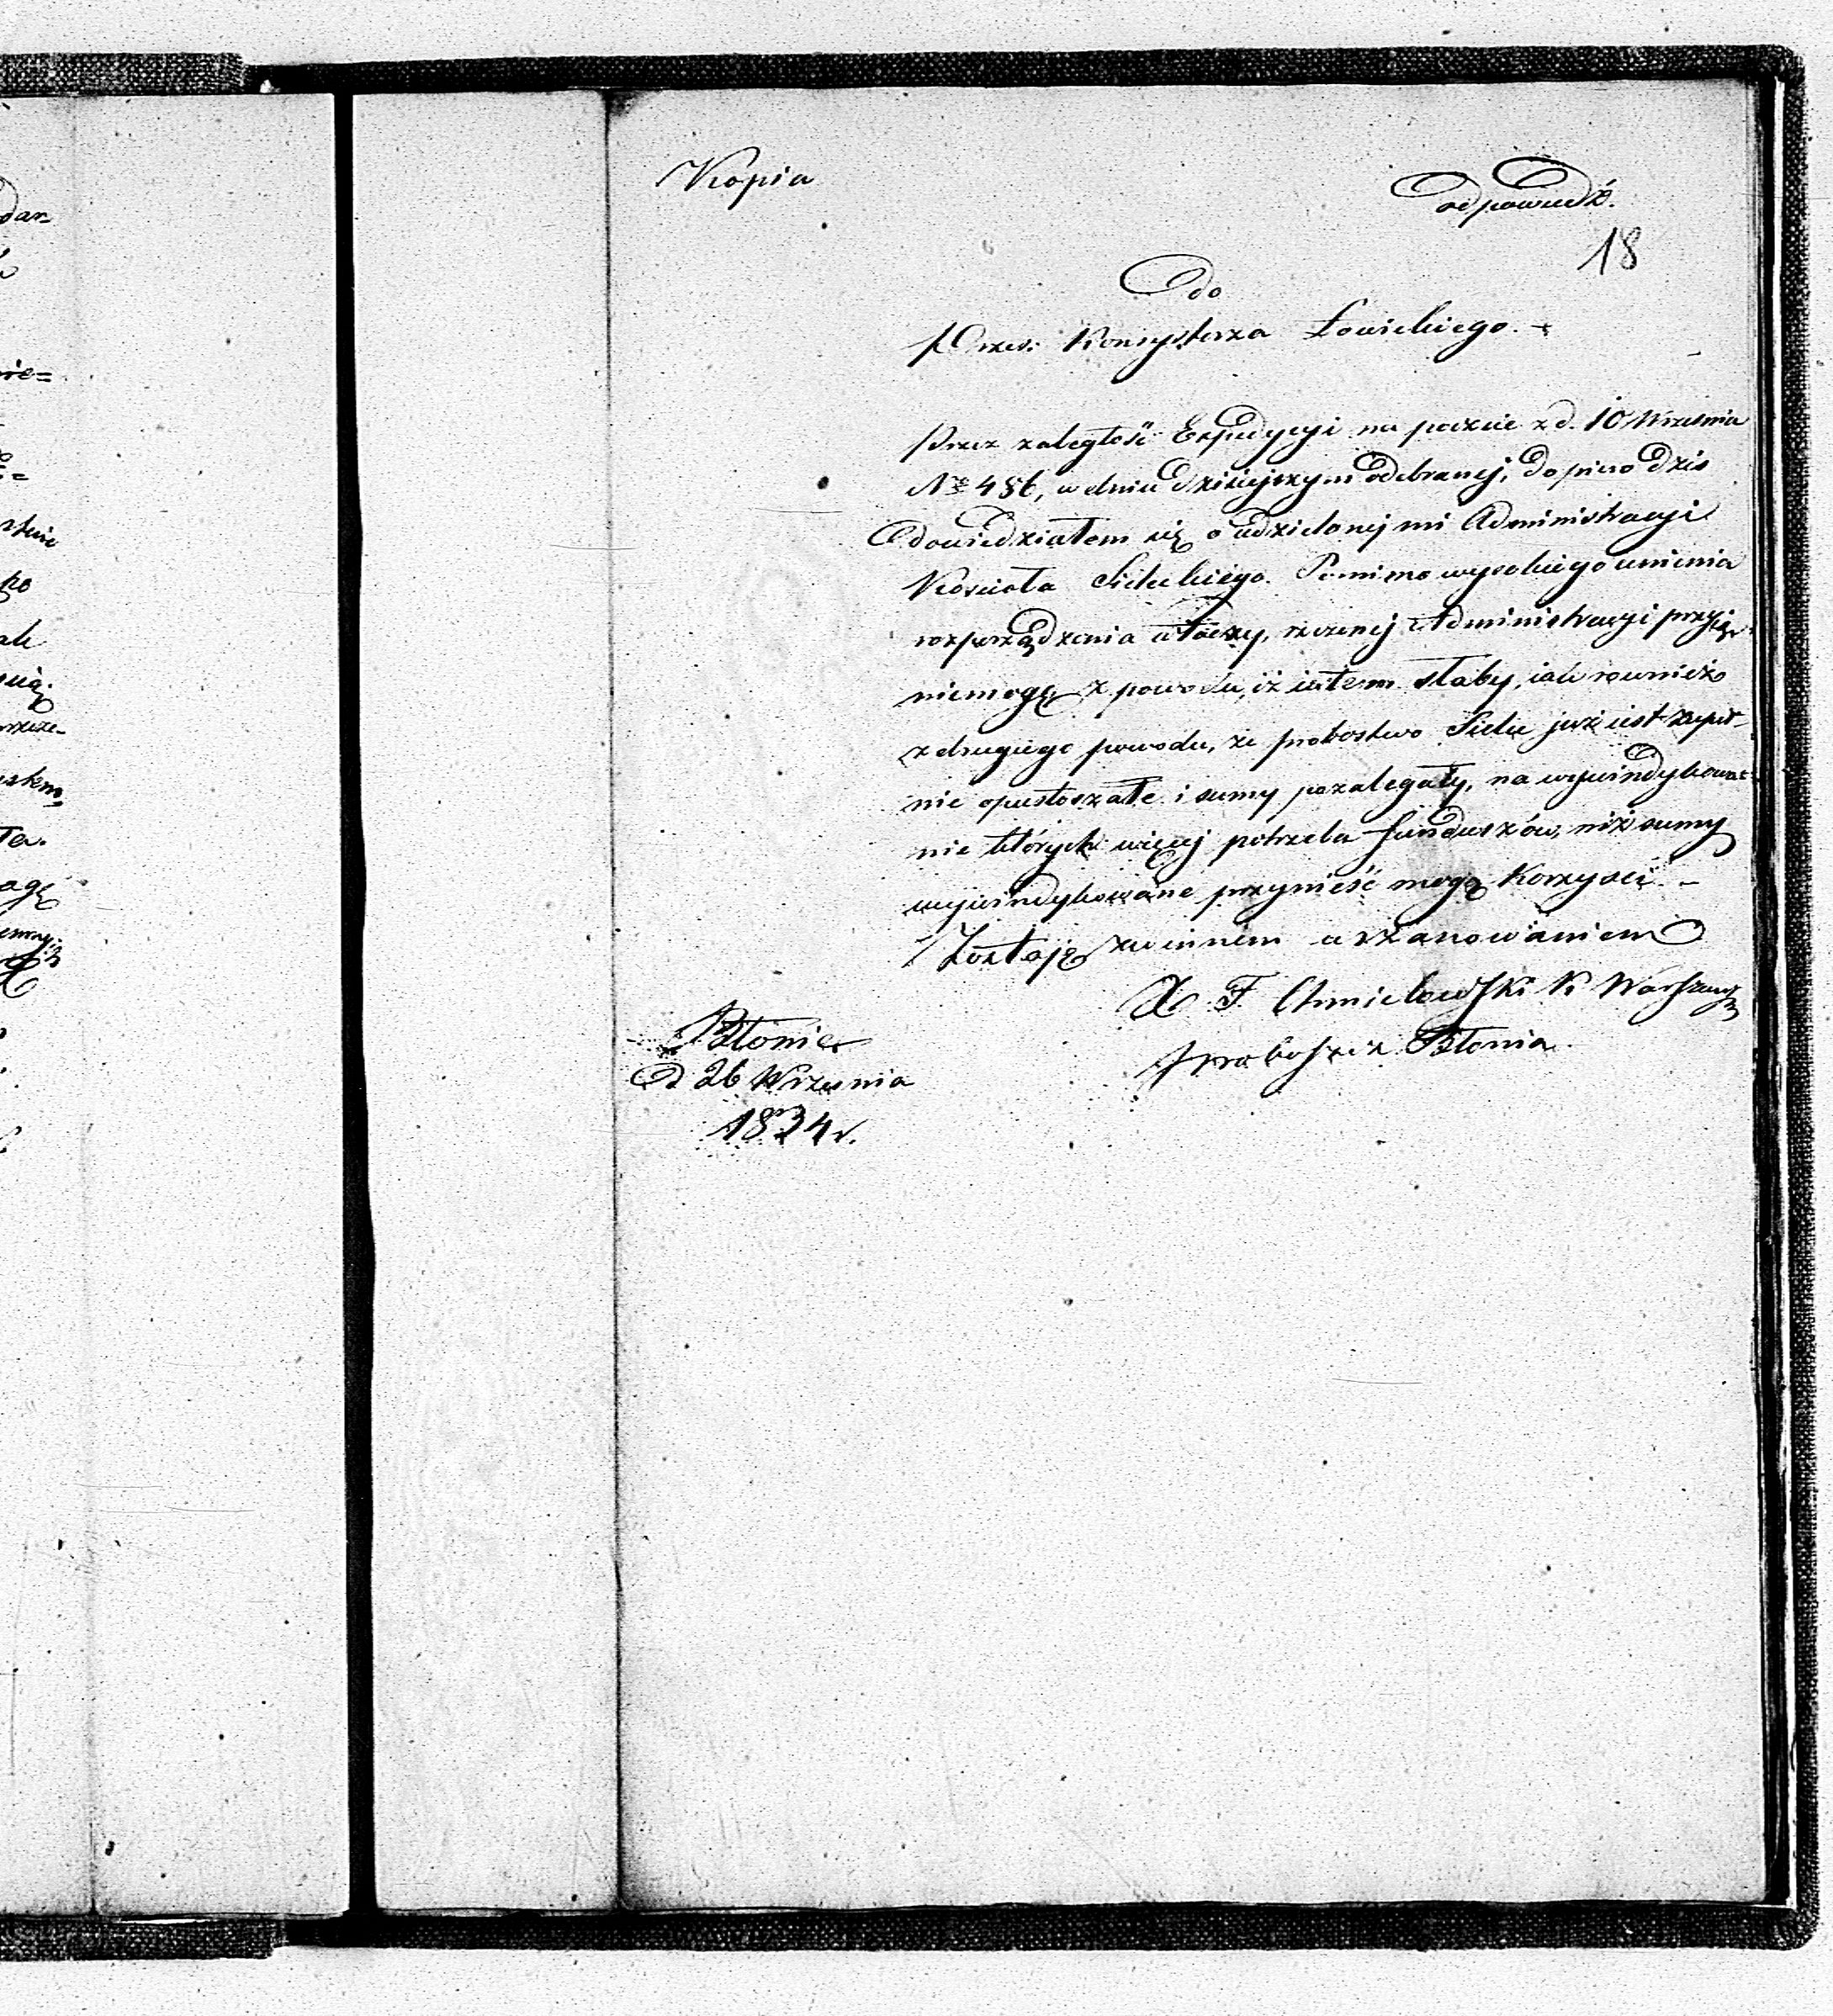 Kopia
Odpowiedź.
18
Do
Prześ: Konsystorza Łowickiego. -
Przez zaległość Expedycyi na poczcie z d. 10 Września
No 456, w dniu dzisiejszym odebranej, dopiero dziś
dowiedziałem się o udzielonej mi Administracyi
Kościoła Pomimo wysokiego umienia
rozporządzenia władzy, rzeczonej Administracyi przyjąć
niemogę z powodu, iż iestem słaby, iak rownież
z drugiego powodu, że probostwo już iest zupeł-
nie opustoszałe i sumy pozalegały, na wywindykowa-
nie których więcej potrzeba funduszów, niż sumy
wywindykowane przynieść mogą Korzyści. -
Zostaję z winnem uszanowaniem
X F. Chmielowski K Warszaws
Proboszcz Błonia.
Błonie
d 26 Września
1834 r.
dar-
ko
ak
ła.
agę